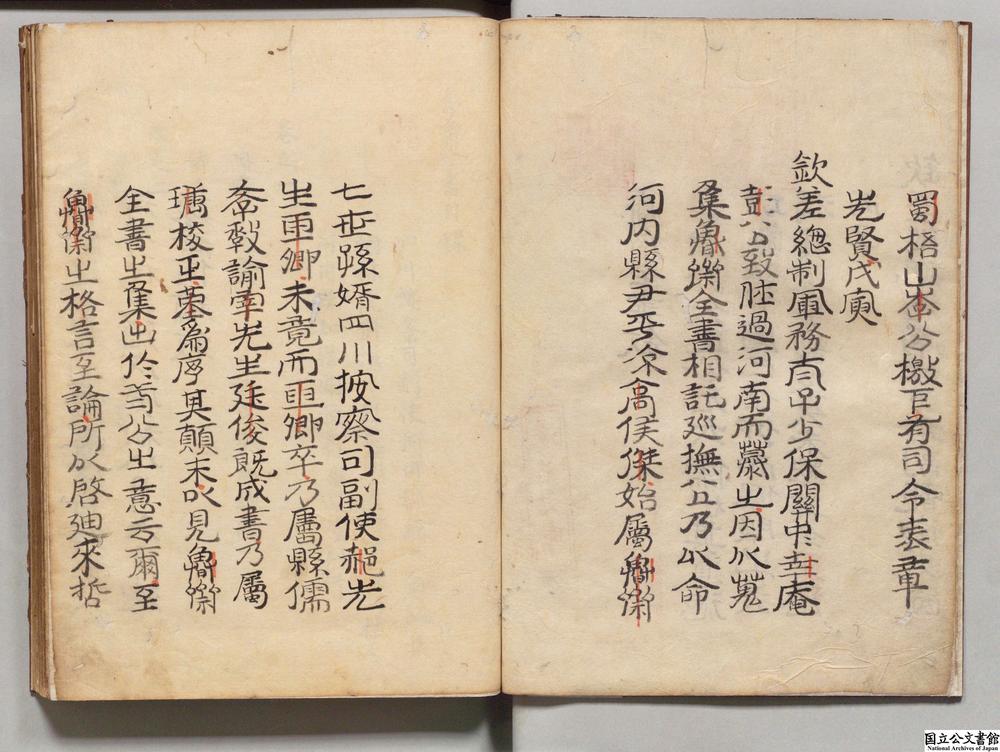 蜀梧山李公檄下有司令表章
先賢戊寅
欽差總制軍務太子少保關中幸庵
彭公致仕過河南而藁之因以蒐
集魯齋全書相託巡撫公乃以命
河内縣尹平涼高侯傑始屬魯齋
七世孫婿四川按察司副使郝先
生亞卿未竟而亞卿卒乃屬縣儒
斎教諭宰先生廷俊既成書乃屬
瑭校正蒙為序其顛末以見魯齋
全書之集出於二公之意云爾至
魯齋之格言至論所以啓廸來哲
国立公文書館
National Archives of Japan